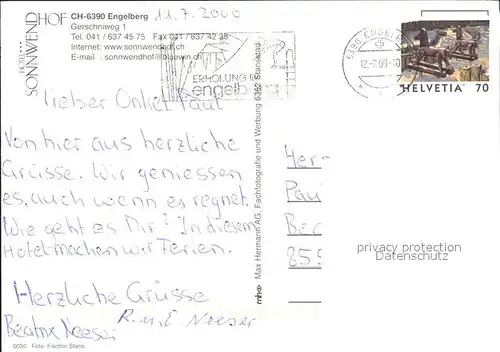 HOTEL ***
SONNWENDHOF
CH-6390 Engelberg
Gerschniweg 1
Tel. 041 / 637 45 75 Fax 041 / 637 42 38
Internet: www.sonnwendhof.ch
E-mail : sonnwendhof@bluewin.ch
11.7.2000
ERHOLUNG
engelberg
6390 ENGELBERG
12-7.00-10
HELVETIA 70
Lieber Onkel Paul
Von hier aus herzliche
Grüsse. Wir geniessen
es, auch wenn es regnet.
Wie geht es Dir? In diesem
Hotel machen wir Ferien.
Herzliche Grüsse
Beatrix Neeser
R. u. E. Neeser
0030 Foto: Fischlin Stans
mho Max Hermann AG, Fachfotografie und Werbung 6362 Stansstad
Her-
Pau
Bec
855
privacy protection
Datenschutz